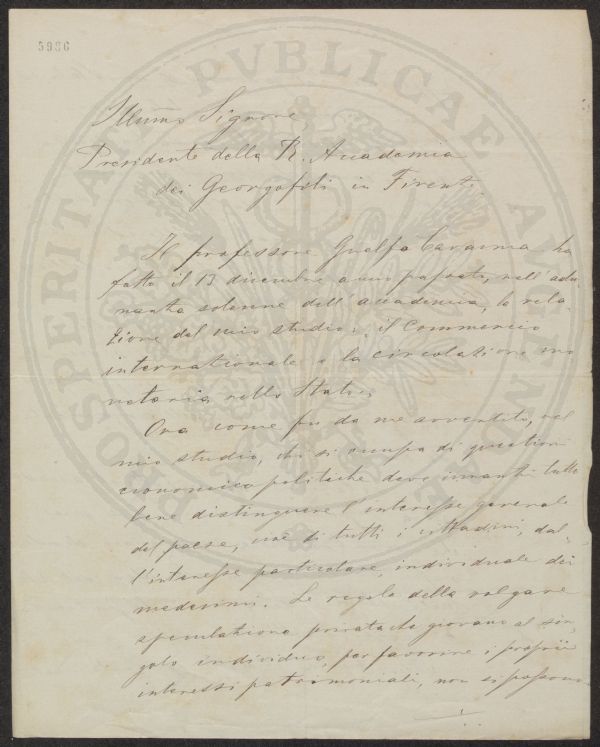 5986
Illmo Signore
Presidente della R. Accademia
dei Georgofili in Firenze
Il professore Guelfo Cavanna ha
fatto il 13 dicembre anno passato, nell'adu
nanza solenne dell'accademia, la rela
zione del mio studio: il Commercio
internationale e la circolazione mo
netaria nello Stato.
Ora come fu da me avvertito, nel
mio studio, chi si occupa di question
economico politiche deve innanzi tutto
bene distinguere l'interesse generale
del paese, cioè di tutti i cittadini, dal-
l'interesse particolare, individuale dei
medesimi. Le regole della volgare
speculazione privata che giovano al sin
golo individuo, per favorire i proprii
interessi patrimoniali, non si possono
PROSPERITATI PVBLICAE AVGENDAE